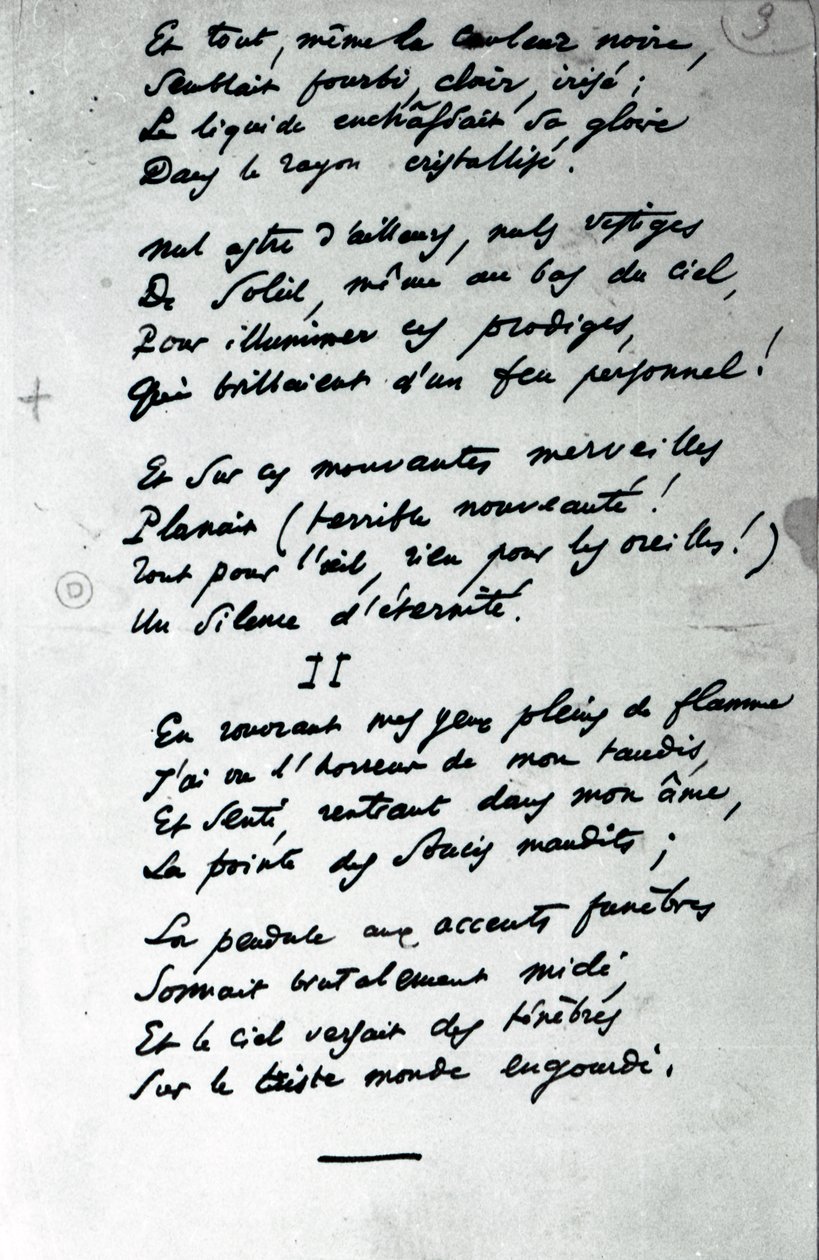 3
Et tout, même la couleur noire,
Semblait fourbi, clair, irisé ;
Le liquide enchâssait sa gloire
Dans le rayon cristallisé.
Nul astre d'ailleurs, nuls vestiges
De Soleil, même au bas du ciel,
Pour illuminer ces prodiges,
Qui brillaient d'un feu personnel !
Et sur ces mouvantes merveilles
Planait (terrible nouveauté !
Tout pour l'œil, rien pour les oreilles !)
Un silence d'éternité.
II
En rouvrant mes yeux pleins de flamme
J'ai vu l'horreur de mon taudis,
Et senti, rentrant dans mon âme,
La pointe des soucis maudits ;
La pendule aux accents funèbres
Sonnait brutalement midi,
Et le ciel versait des ténèbres
Sur le triste monde engourdi.
D